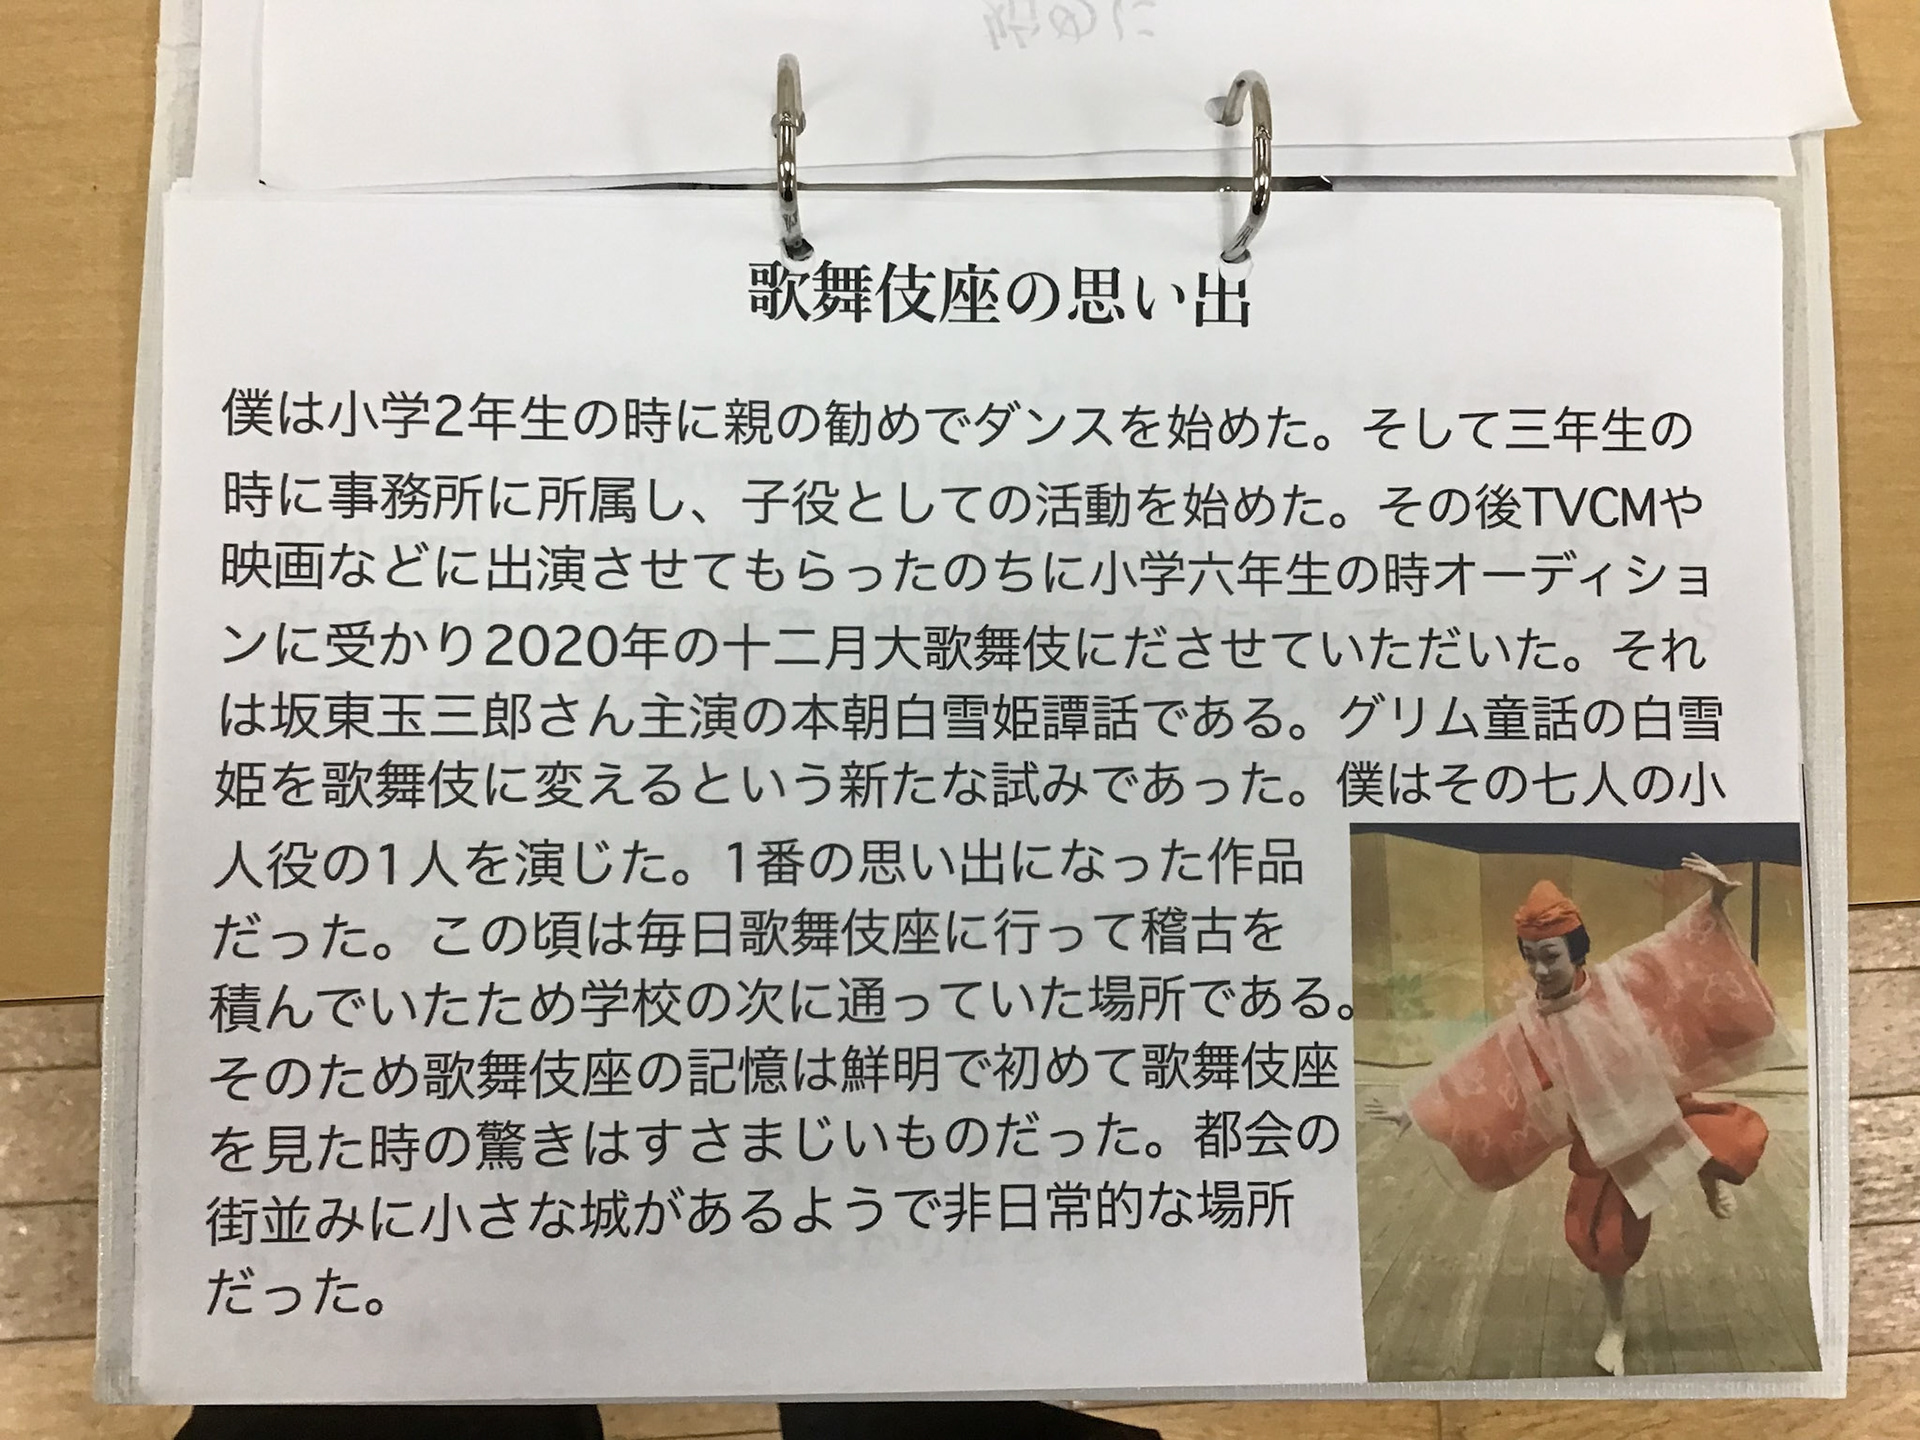 歌舞伎座の思い出
僕は小学2年生の時に親の勧めでダンスを始めた。そして三年生の
時に事務所に所属し、子役としての活動を始めた。その後TVCMや
映画などに出演させてもらったのちに小学六年生の時オーディショ
ンに受かり2020年の十二月大歌舞伎にださせていただいた。それ
は坂東玉三郎さん主演の本朝白雪姫譚話である。グリム童話の白雪
姫を歌舞伎に変えるという新たな試みであった。僕はその七人の小
人役の1人を演じた。1番の思い出になった作品
だった。この頃は毎日歌舞伎座に行って稽古を
積んでいたため学校の次に通っていた場所である。
そのため歌舞伎座の記憶は鮮明で初めて歌舞伎座
を見た時の驚きはすさまじいものだった。都会の
街並みに小さな城があるようで非日常的な場所
だった。